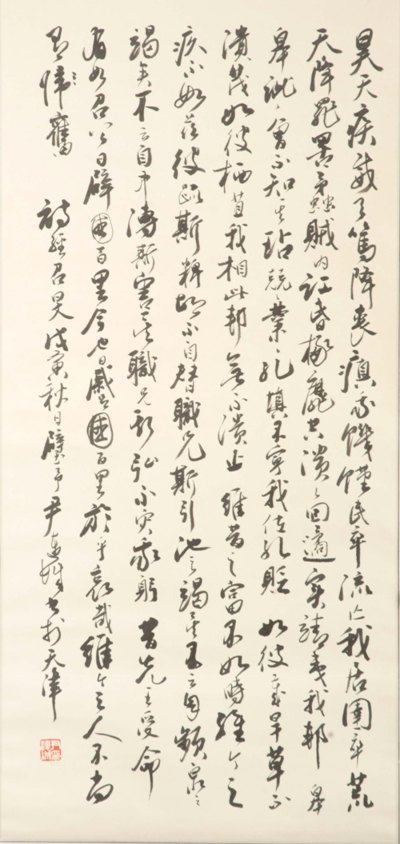 昊天疾威天篤降喪瘨我饑饉民卒流亡我居圉卒荒
天降罪罟蟊賊內訌昏椓靡共潰々回遹實靖夷我邦 皋
皋訿々曾不知其玷兢々業々孔填不寧我位孔貶 如彼歲旱草不
潰茂如彼栖苴我相此邦無不潰止 維昔之富不如時維今之
疚不如茲彼疏斯粺胡不自替職兄斯引池之竭矣不云自頻泉之
竭矣不云自中溥斯害矣職兄斯弘不灾我躬 昔先王受命
有如召公日辟國百里今也日蹙國百里於乎哀哉維今之人不尚
舊 詩經召旻 戊寅秋日 尹 書於天津